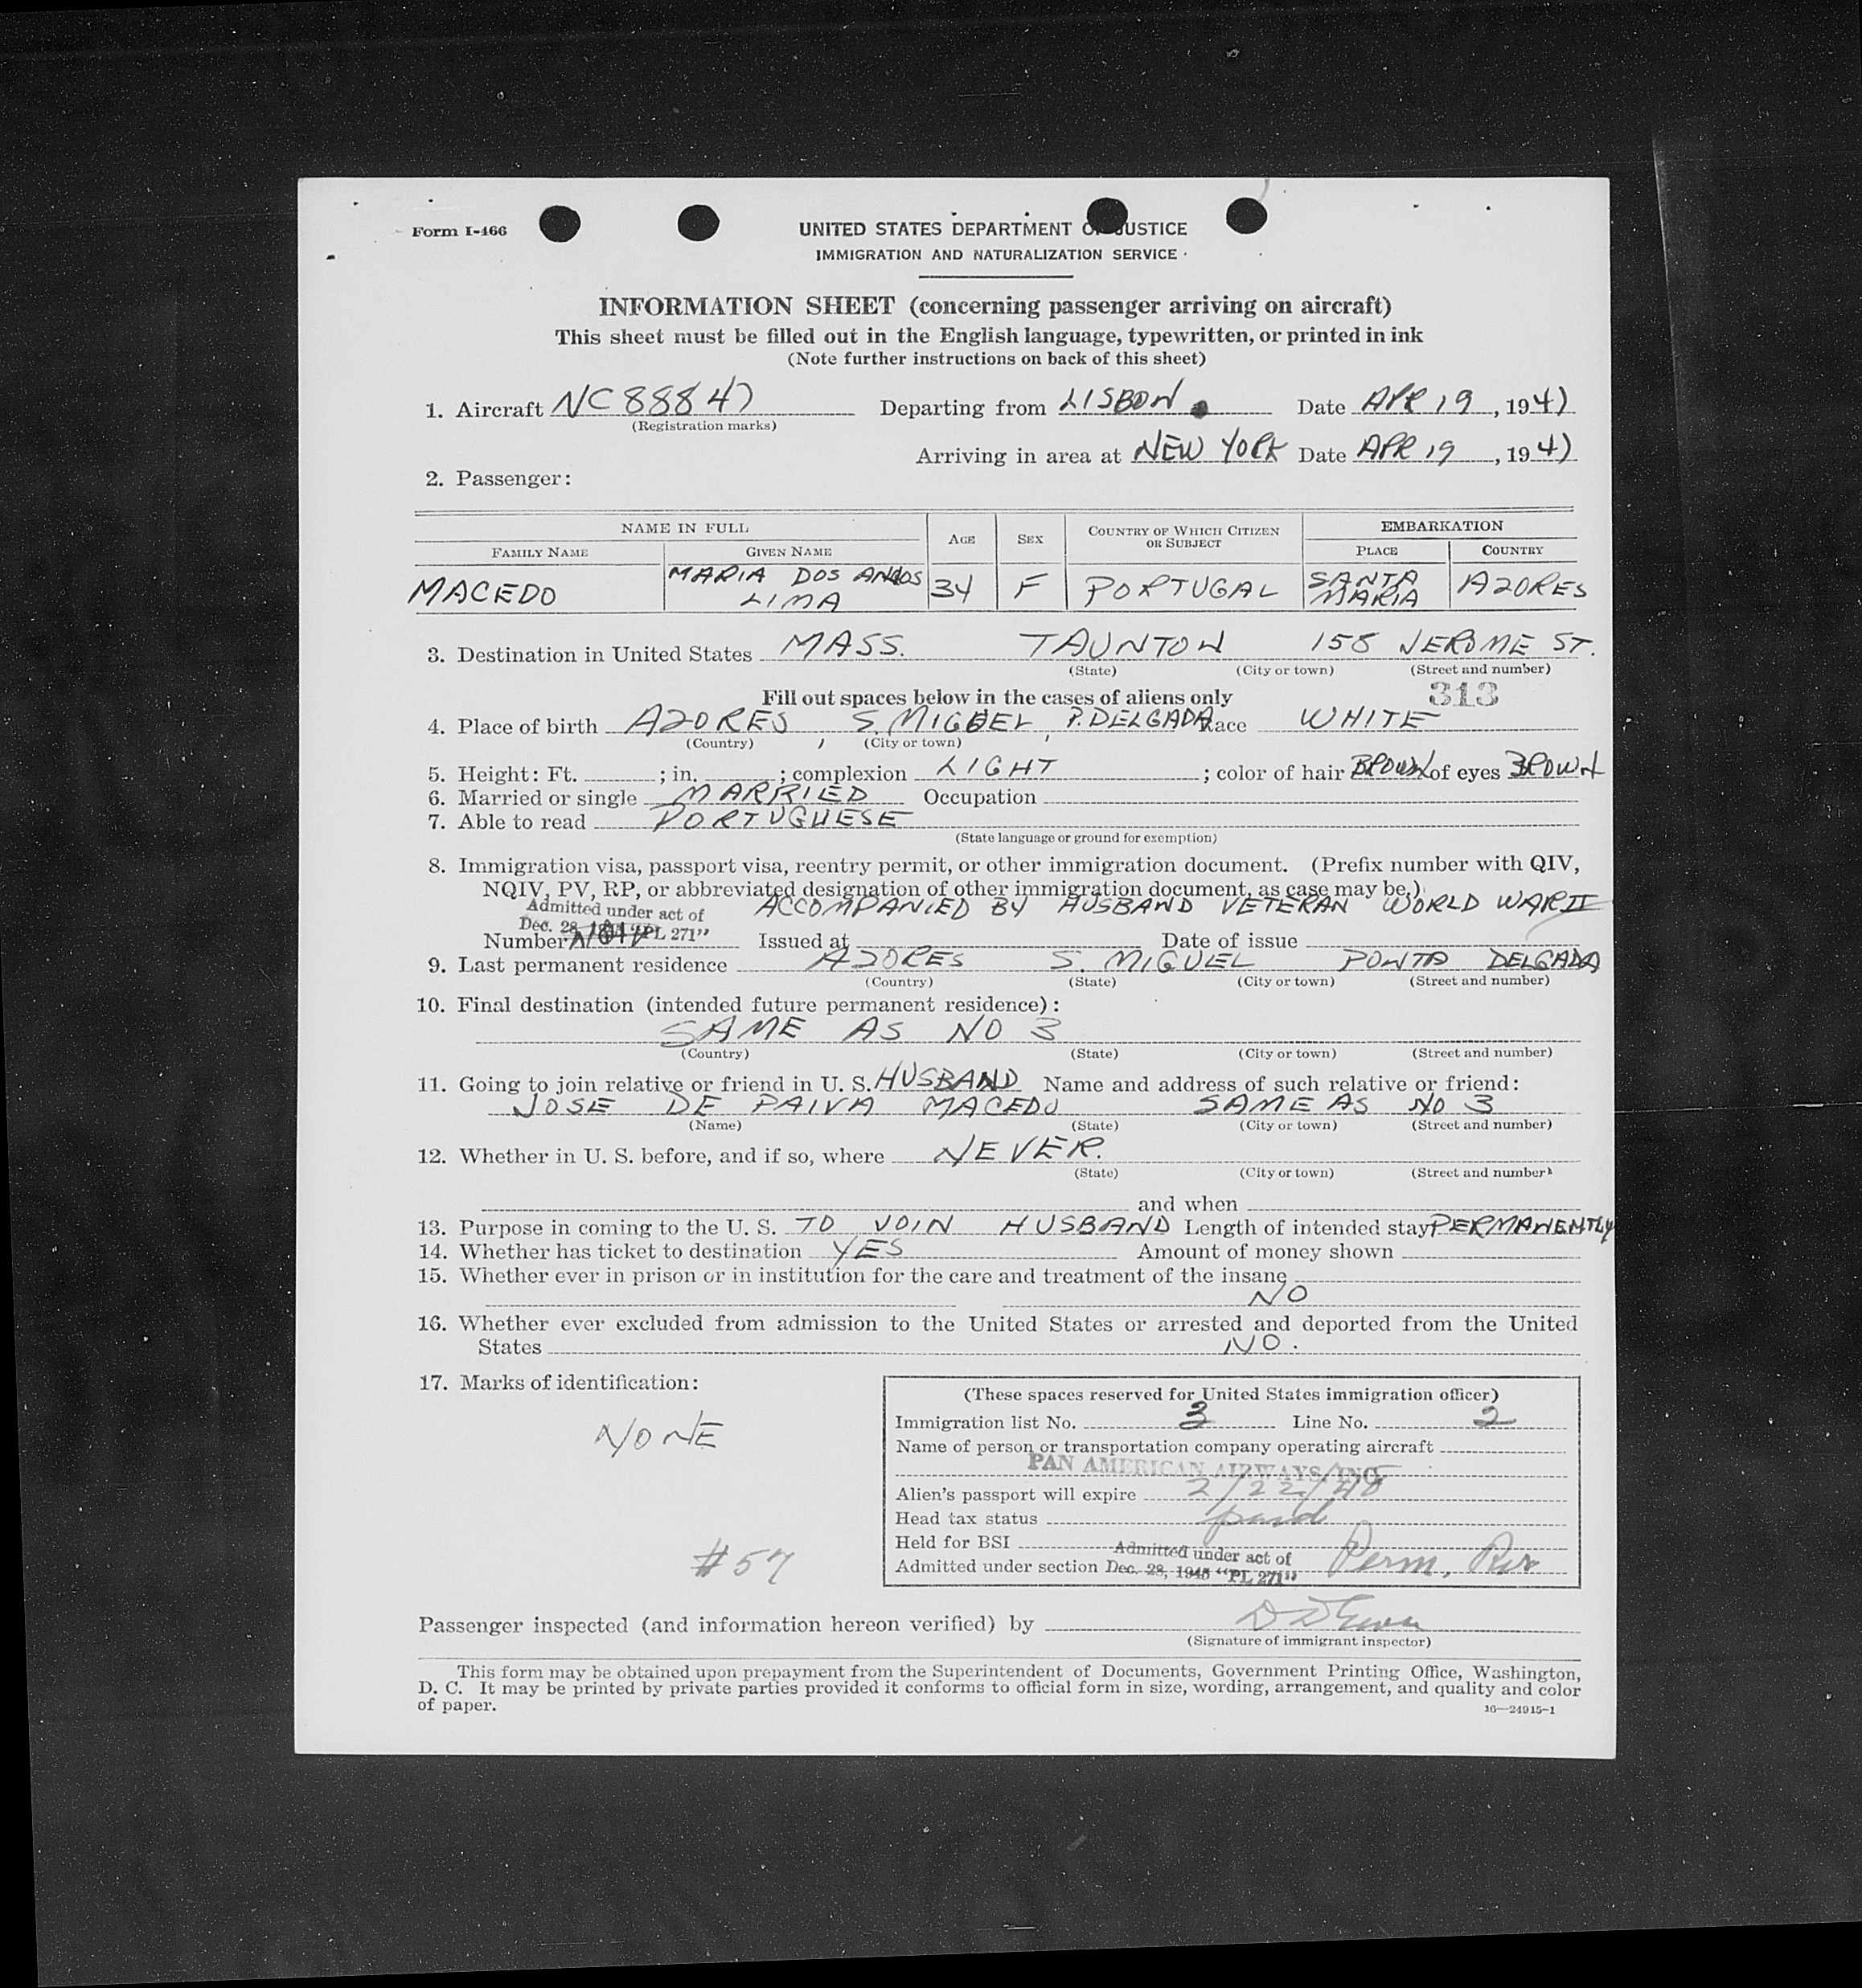 Form I-466
UNITED STATES DEPARTMENT OF JUSTICE
IMMIGRATION AND NATURALIZATION SERVICE
INFORMATION SHEET (concerning passenger arriving on aircraft)
This sheet must be filled out in the English language, typewritten, or printed in ink
(Note further instructions on back of this sheet)
1. Aircraft NC88847 Departing from LISBON Date APR 19, 1947
(Registration marks)
Arriving in area at NEW YORK Date APR 19, 1947
2. Passenger:
NAME IN FULL AGE SEX COUNTRY OF WHICH CITIZEN OR SUBJECT EMBARKATION
FAMILY NAME GIVEN NAME PLACE COUNTRY
MACEDO MARIA DOS ANJOS LIMA 34 F PORTUGAL SANTA MARIA AZORES
3. Destination in United States MASS. TAUNTON 158 JEROME ST.
(State) (City or town) (Street and number)
Fill out spaces below in the cases of aliens only 313
4. Place of birth AZORES, S. MIGUEL, P. DELGADA Race WHITE
(Country) (City or town)
5. Height: Ft. ; in. ; complexion LIGHT ; color of hair BROWN of eyes BROWN
6. Married or single MARRIED Occupation
7. Able to read PORTUGUESE
(State language or ground for exemption)
8. Immigration visa, passport visa, reentry permit, or other immigration document. (Prefix number with QIV,
NQIV, PV, RP, or abbreviated designation of other immigration document, as case may be.)
Admitted under act of ACCOMPANIED BY HUSBAND VETERAN WORLD WAR II
Dec. 28, 1945 "PL 271"
Number Issued at Date of issue
9. Last permanent residence AZORES S. MIGUEL PONTA DELGADA
(Country) (State) (City or town) (Street and number)
10. Final destination (intended future permanent residence):
SAME AS NO 3
(Country) (State) (City or town) (Street and number)
11. Going to join relative or friend in U. S. HUSBAND Name and address of such relative or friend:
JOSE DE PAIVA MACEDO SAME AS NO 3
(Name) (State) (City or town) (Street and number)
12. Whether in U. S. before, and if so, where NEVER.
(State) (City or town) (Street and number)
and when
13. Purpose in coming to the U. S. TO JOIN HUSBAND Length of intended stay PERMANENTLY
14. Whether has ticket to destination YES Amount of money shown
15. Whether ever in prison or in institution for the care and treatment of the insane
NO
16. Whether ever excluded from admission to the United States or arrested and deported from the United
States NO.
17. Marks of identification:
NONE
#57
(These spaces reserved for United States immigration officer)
Immigration list No. 3 Line No. 2
Name of person or transportation company operating aircraft
PAN AMERICAN AIRWAYS, INC.
Alien's passport will expire 2/22/48
Head tax status paid
Held for BSI
Admitted under section Admitted under act of Dec. 28, 1945 "PL 271" Perm. Res
Passenger inspected (and information hereon verified) by
(Signature of immigrant inspector)
This form may be obtained upon prepayment from the Superintendent of Documents, Government Printing Office, Washington,
D. C. It may be printed by private parties provided it conforms to official form in size, wording, arrangement, and quality and color
of paper.
16—24915-1